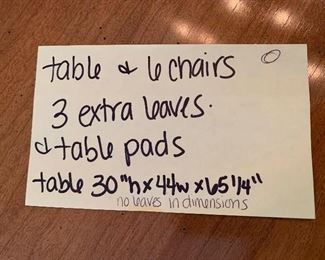 table & 6 chairs
3 extra leaves.
& table pads
table 30"h x 44w x 65 1/4"
no leaves in dimensions